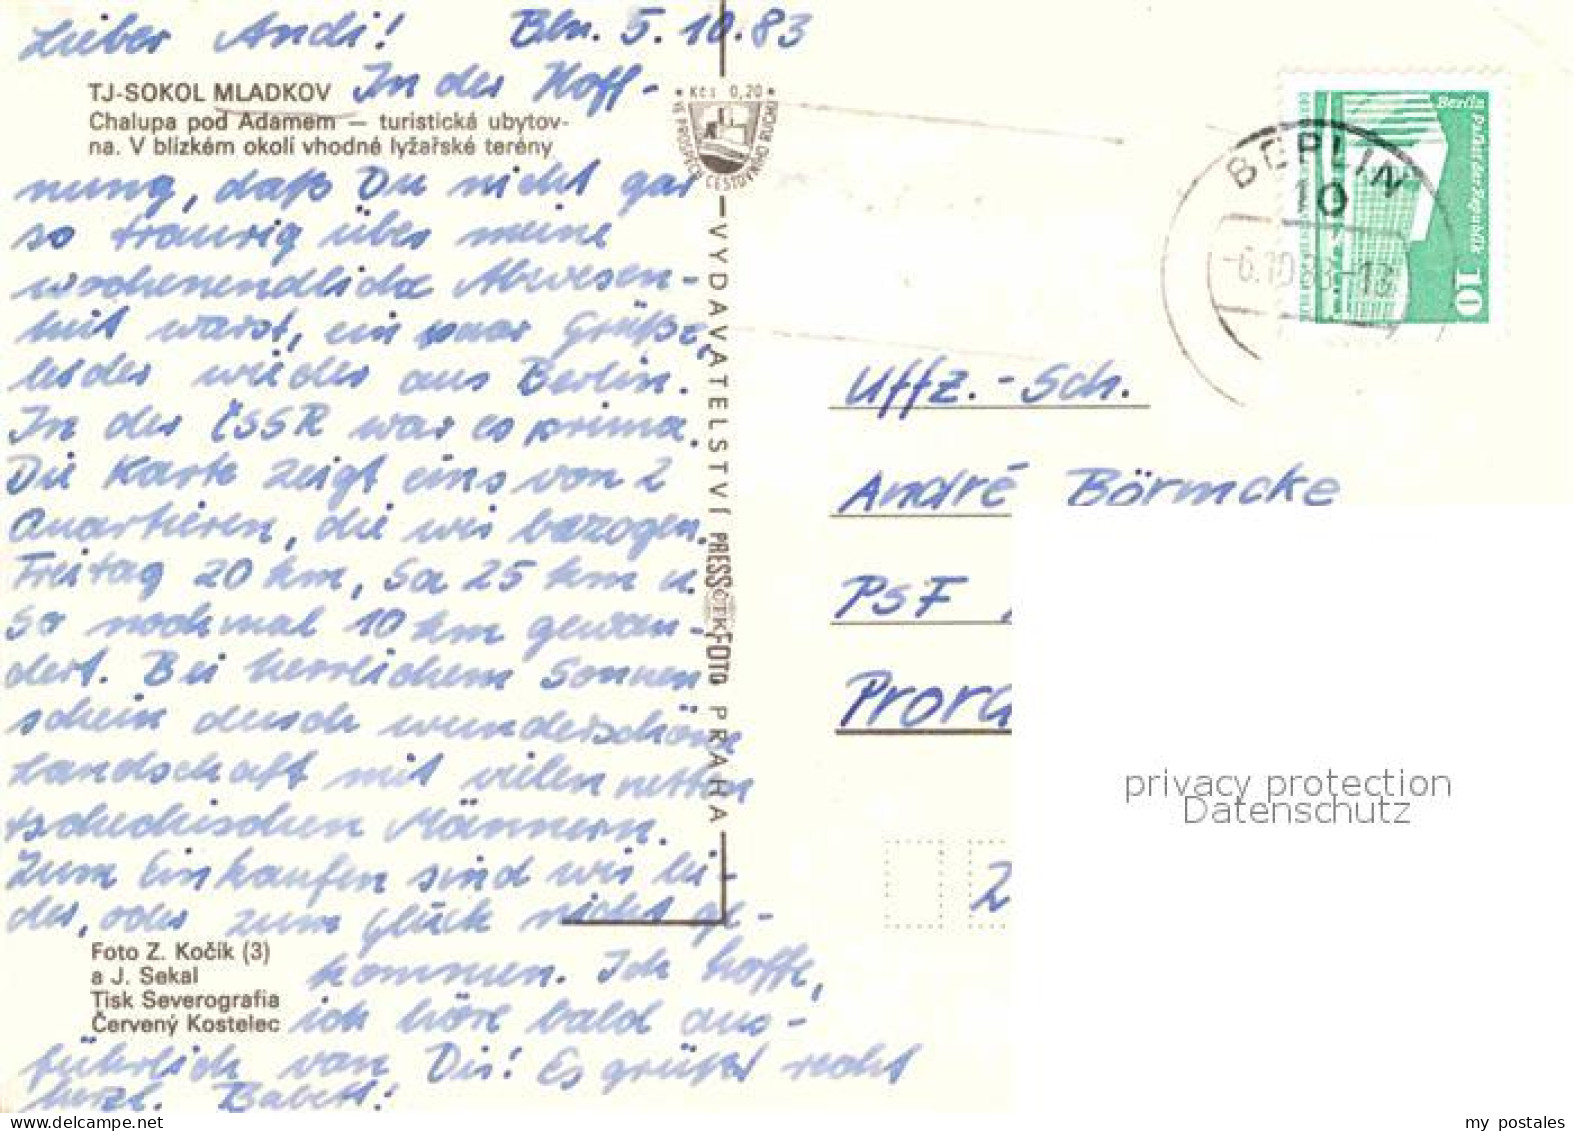 Lieber Andi! Bln. 5.10.83
TJ-SOKOL MLADKOV
In der Hoff-
Chalupa pod Adamem — turistická ubytov-
na. V blízkém okolí vhodné lyžařské terény
nung, daß Du nicht gar
so traurig über meine
wochenendliche Abwesen-
heit warst, ein paar Grüße,
leider wieder aus Berlin.
In der ČSSR war es prima.
Die Karte zeigt eins von 2
Quartieren, die wir bezogen.
Freitag 20 km, Sa 25 km u.
So nochmal 10 km gewan-
dert. Bei herrlichem Sonnen
schein durch wunderschöne
Landschaft mit vielen netten
tschechischen Männern.
Zum Einkaufen sind wir lei-
der, oder zum Glück nicht ge-
kommen. Ich hoffe,
ich höre bald aus-
führlich von Dir! Es grüßt recht
herzl. Babett!
Foto Z. Kočík (3)
a J. Sekal
Tisk Severografia
Červený Kostelec
* Kčs 0,20 *
VE PROSPĚCH CESTOVNÍHO RUCHU
VYDAVATELSTVÍ PRESSFOTO PRAHA
ČTK
BERLIN
10
-6.10.83.-18
Berlin
Palast der Republik
10
Uffz.-Sch.
André Börmcke
PSF
Prora
2
privacy protection
Datenschutz
www.delcampe.net
my postales